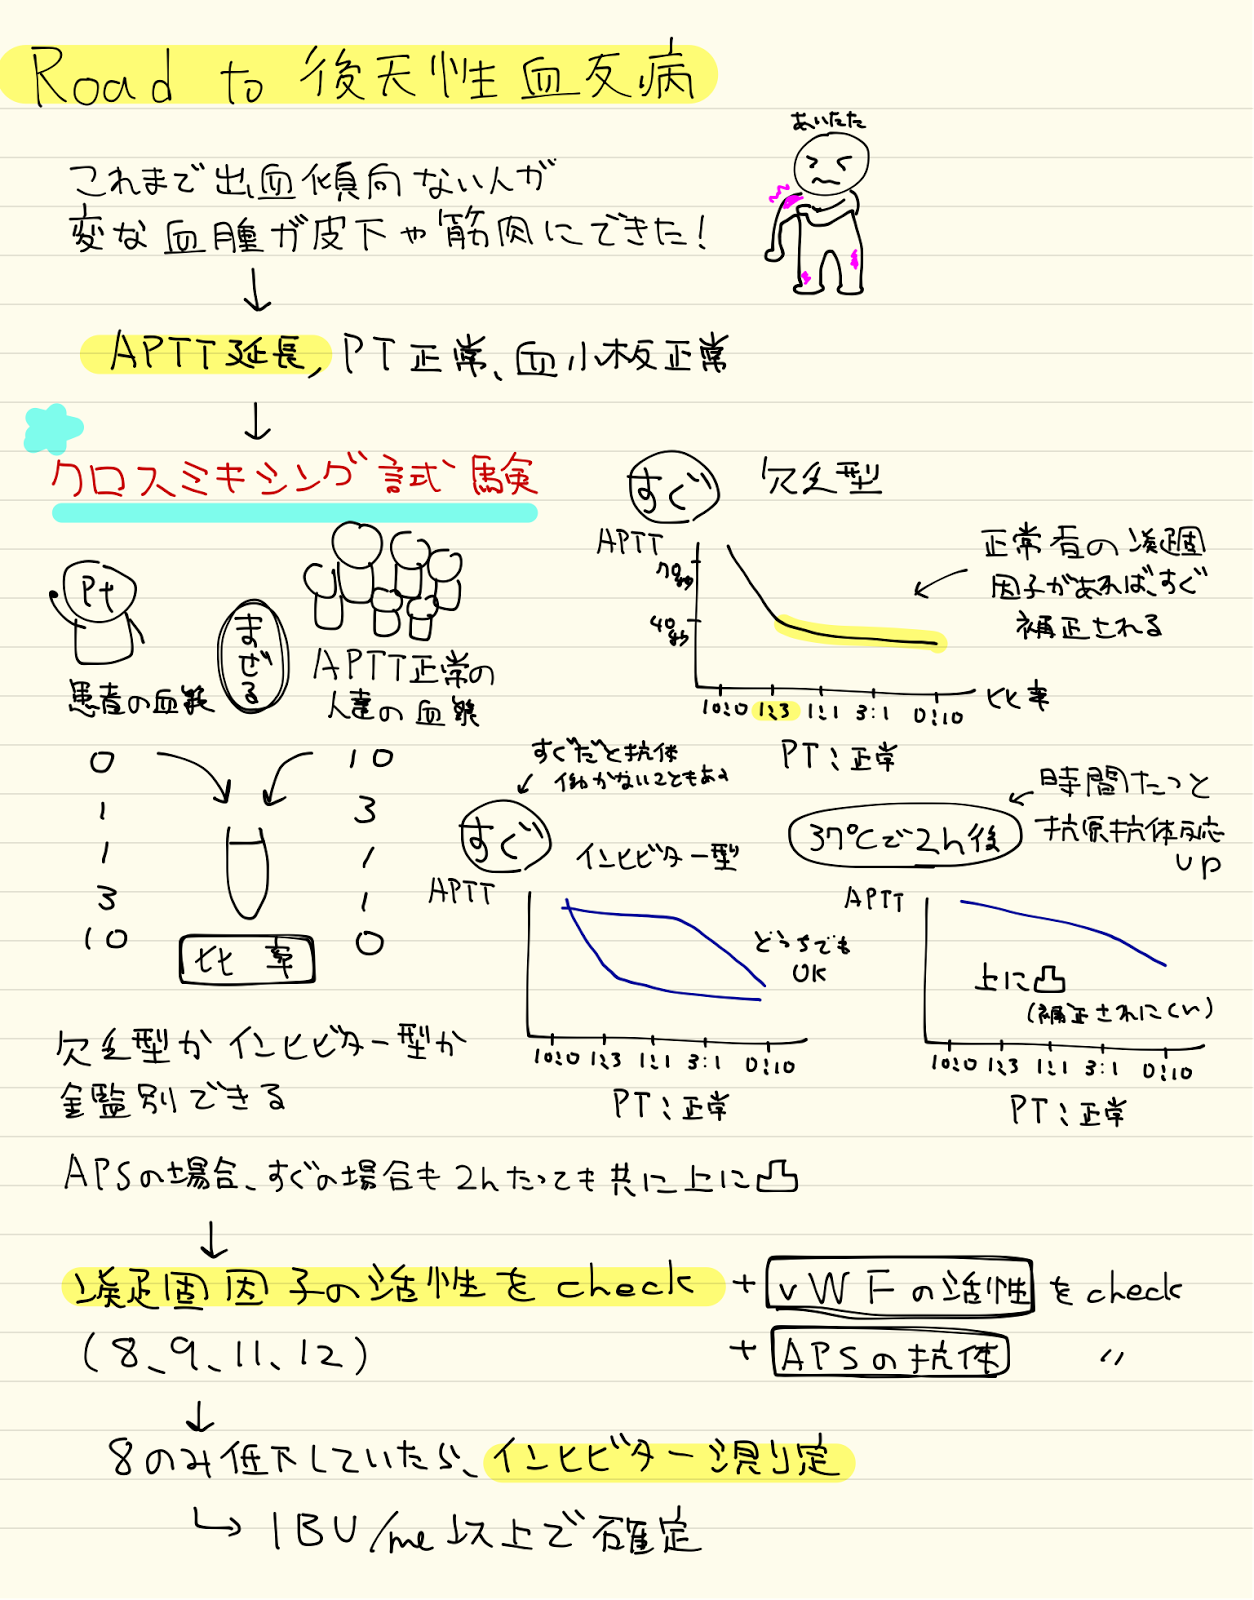 Road to 後天性血友病
あいたた
これまで出血傾向ない人が
変な血腫が皮下や筋肉にできた!
↓
APTT延長, PT正常、血小板正常
↓
クロスミキシング試験
Pt
まぜる
患者の血漿
APTT正常の
人達の血漿
0 10
1 3
1 1
3 1
10 0
比率
欠乏型かインヒビター型か
鑑別できる
すぐ 欠乏型
APTT
70秒
40秒
10:0 1:3 1:1 3:1 0:10 比率
PT:正常
正常者の凝固
因子があれば、すぐ
補正される
すぐだと抗体
働かないこともある
すぐ インヒビター型
APTT
どっちでも
OK
10:0 1:3 1:1 3:1 0:10
PT:正常
37℃で2h後
時間たつと
抗原抗体反応
up
APTT
上に凸
(補正されにくい)
10:0 1:3 1:1 3:1 0:10
PT:正常
APSの場合、すぐの場合も2hたっても共に上に凸
↓
凝固因子の活性をcheck + vWFの活性をcheck
(8、9、11、12) + APSの抗体 〃
↓
8のみ低下していたら、インヒビター測定
↳ 1BU/ml以上で確定